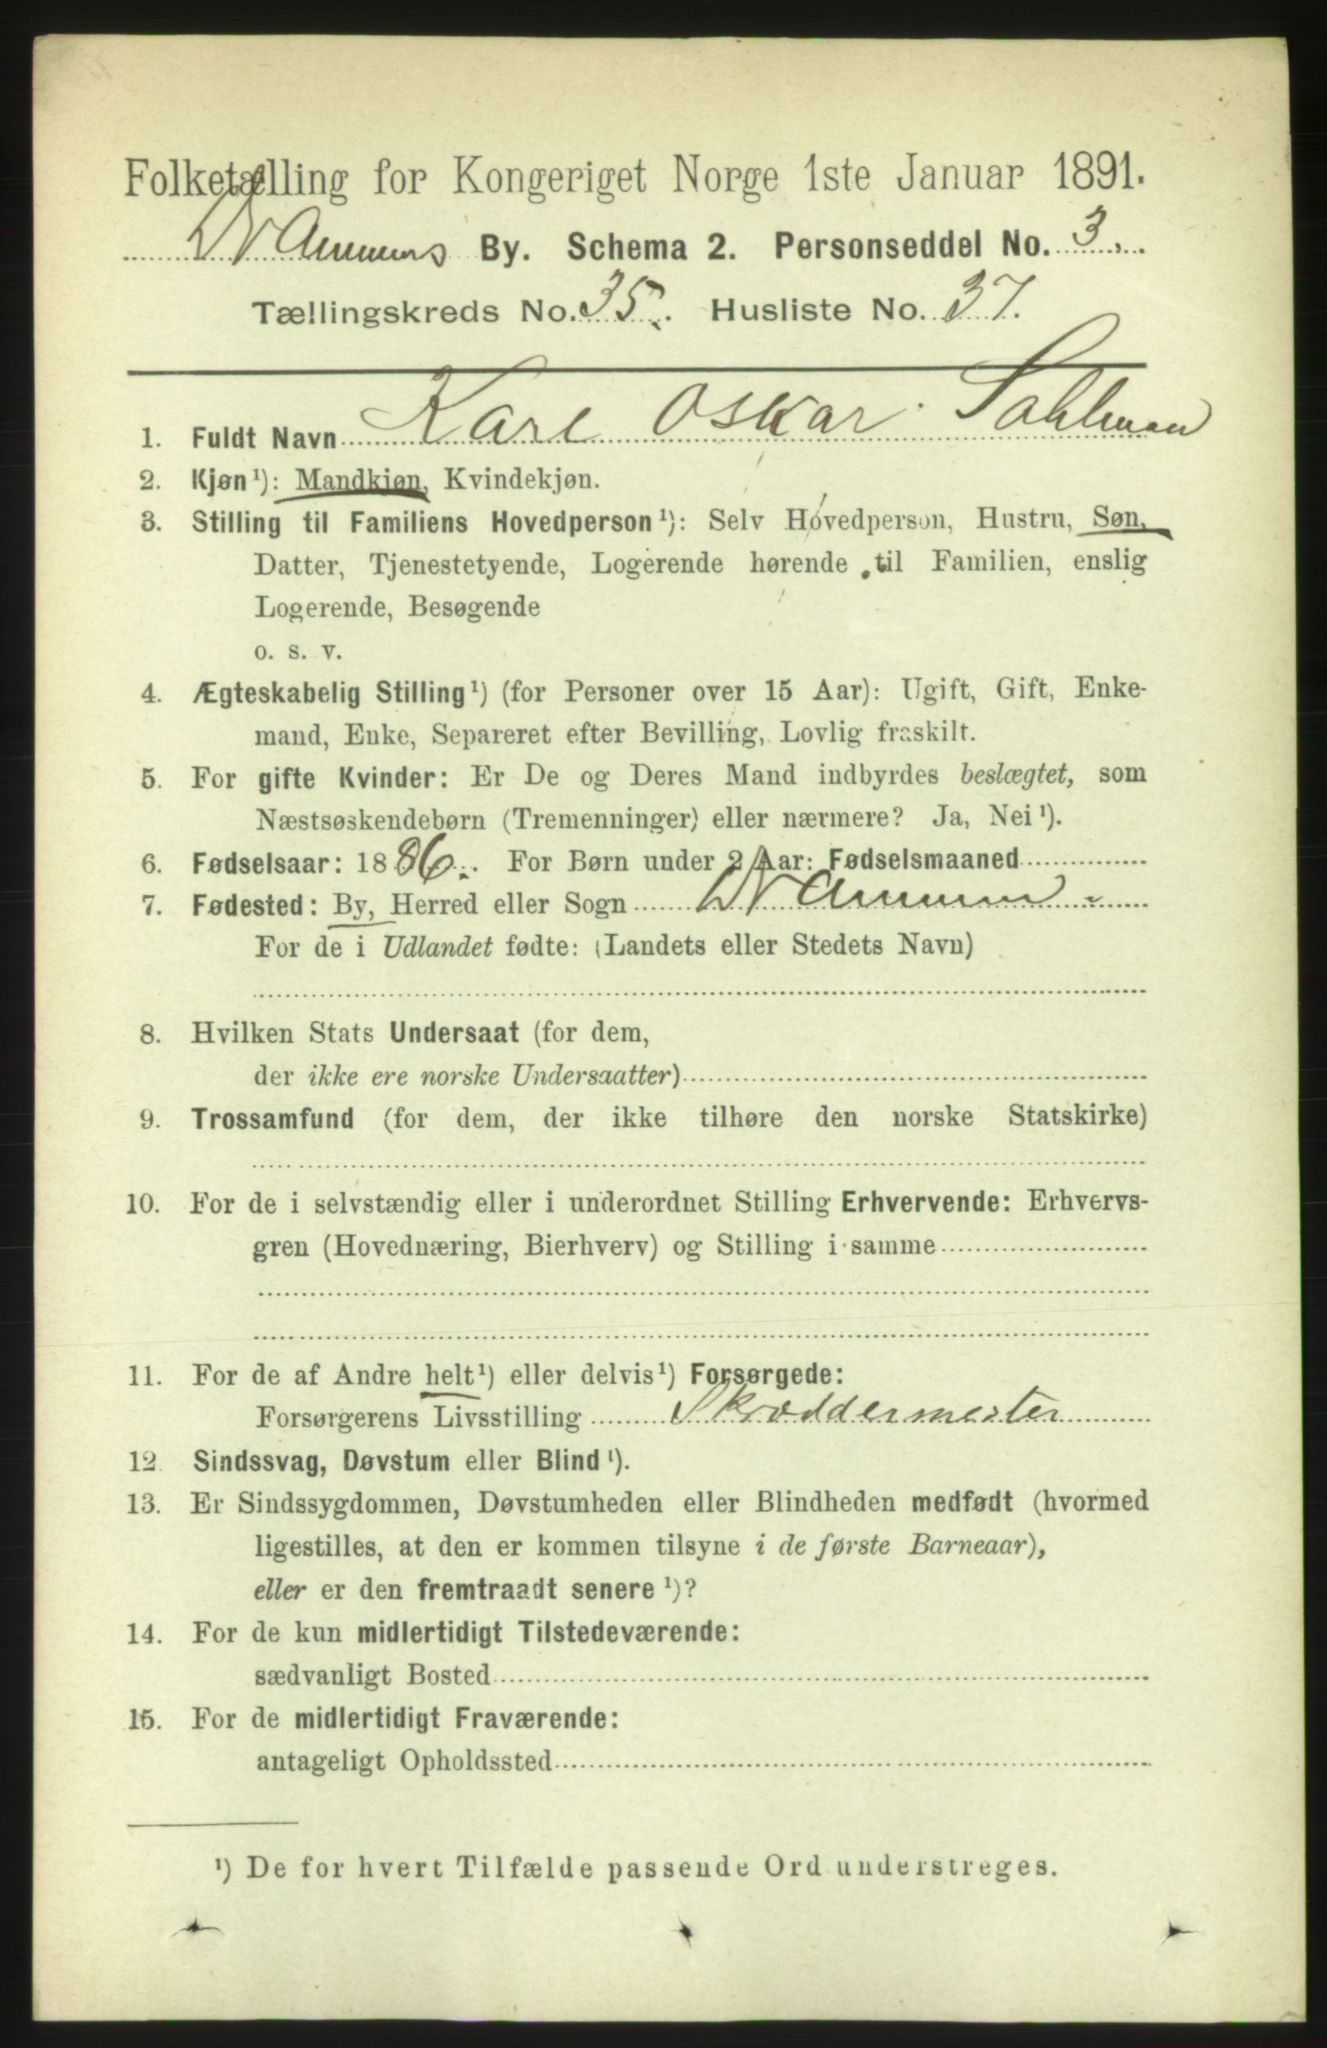 Folketælling for Kongeriget Norge 1ste Januar 1891.
Drammens By. Schema 2. Personseddel No. 3.
Tællingskreds No. 35. Husliste No. 37.
1. Fuldt Navn Karl Oskar Sahlman
2. Kjøn¹): Mandkjøn, Kvindekjøn.
3. Stilling til Familiens Hovedperson¹): Selv Hovedperson, Hustru, Søn,
Datter, Tjenestetyende, Logerende hørende til Familien, enslig
Logerende, Besøgende
o. s. v.
4. Ægteskabelig Stilling¹) (for Personer over 15 Aar): Ugift, Gift, Enke-
mand, Enke, Separeret efter Bevilling, Lovlig fraskilt.
5. For gifte Kvinder: Er De og Deres Mand indbyrdes beslægtet, som
Næstsøskendebørn (Tremenninger) eller nærmere? Ja, Nei¹).
6. Fødselsaar: 1886. For Børn under 2 Aar: Fødselsmaaned
7. Fødested: By, Herred eller Sogn Drammen
For de i Udlandet fødte: (Landets eller Stedets Navn)
8. Hvilken Stats Undersaat (for dem,
der ikke ere norske Undersaatter)
9. Trossamfund (for dem, der ikke tilhøre den norske Statskirke)
10. For de i selvstændig eller i underordnet Stilling Erhvervende: Erhvervs-
gren (Hovednæring, Bierhverv) og Stilling i samme
11. For de af Andre helt¹) eller delvis¹) Forsørgede:
Forsørgerens Livsstilling Skræddermester
12. Sindssvag, Døvstum eller Blind¹).
13. Er Sindssygdommen, Døvstumheden eller Blindheden medfødt (hvormed
ligestilles, at den er kommen tilsyne i de første Barneaar),
eller er den fremtraadt senere¹)?
14. For de kun midlertidigt Tilstedeværende:
sædvanligt Bosted
15. For de midlertidigt Fraværende:
antageligt Opholdssted
¹) De for hvert Tilfælde passende Ord understreges.